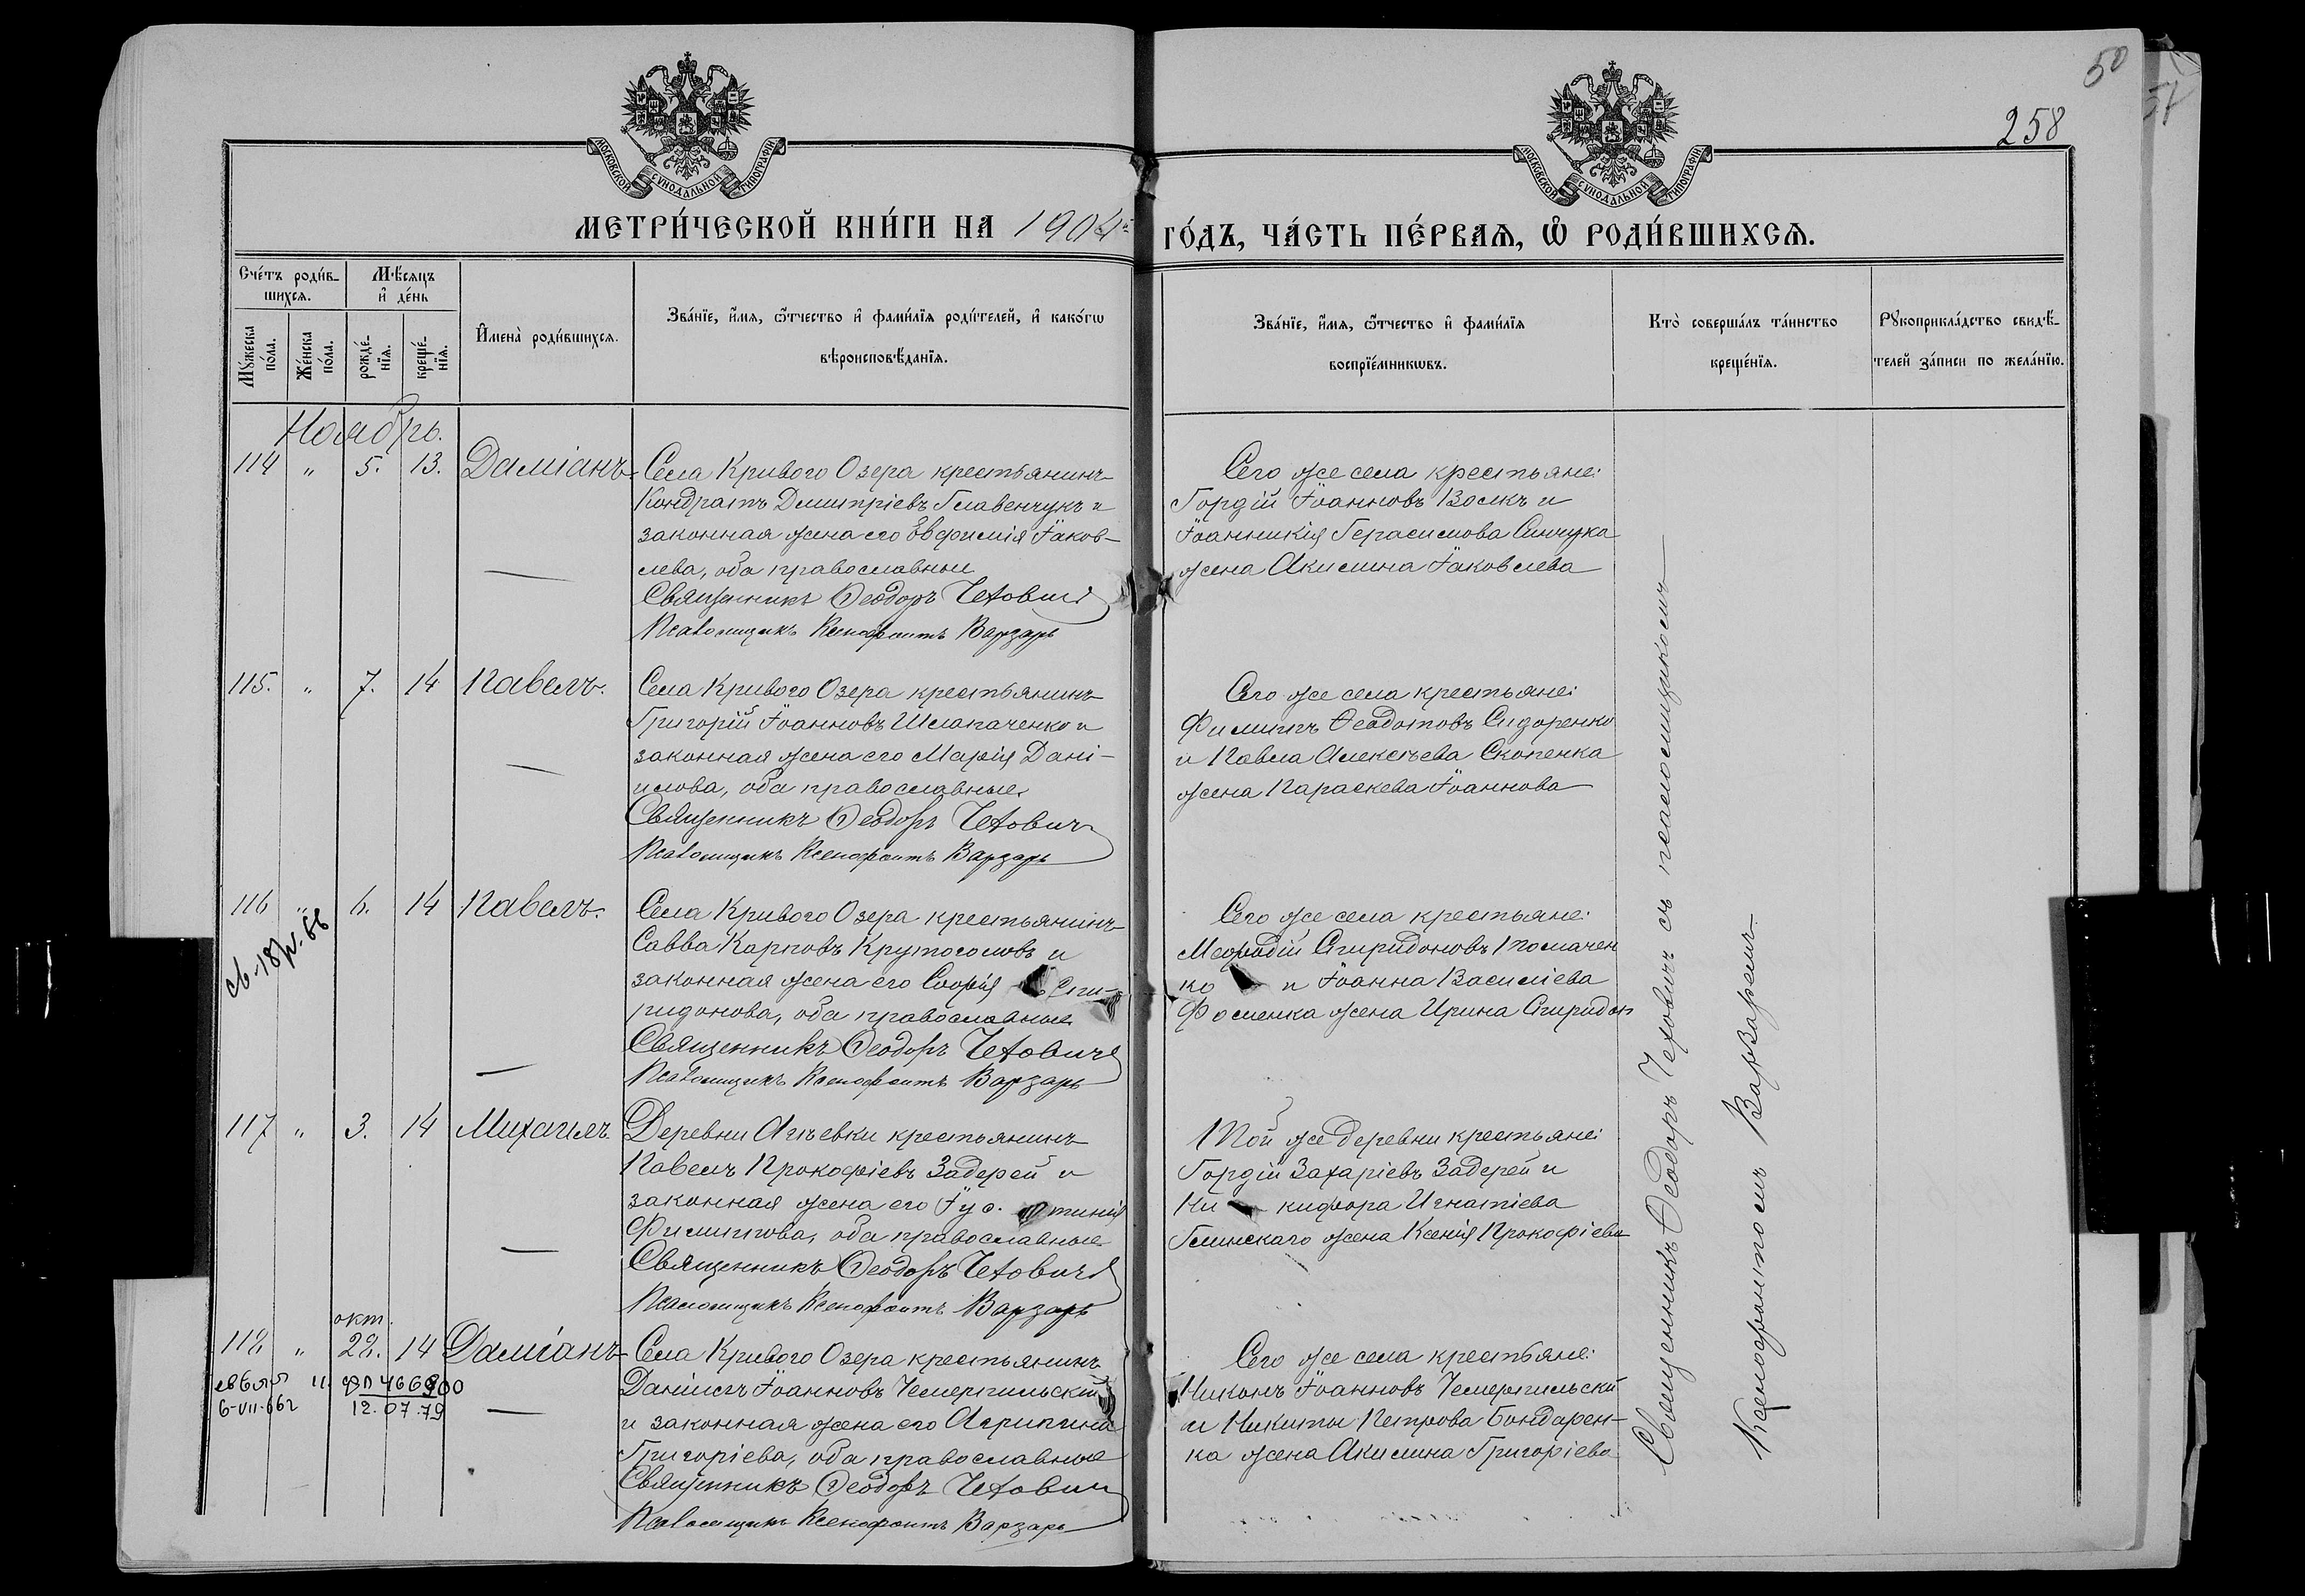 50
258
МОСКОВСКОЙ СѴНОДАЛЬНОЙ ТИПОГРАФІИ
МОСКОВСКОЙ СѴНОДАЛЬНОЙ ТИПОГРАФІИ
МЕТРИ́ЧЕСКОЙ КНИ́ГИ НА 1904 ГО́ДЪ, ЧА́СТЬ ПЕ́РВАЯ, Ѡ҆ РОДИ́ВШИХСЯ.
Сче́тъ роди́в-
шихся.
Мѣ́сяцъ
и҆ де́нь
Мꙋ́жеска по́ла.
Же́нска по́ла.
рожде́-
нїя.
креще́-
нїя.
И҆мена̀ роди́вшихся.
Зва́нїе, и҆́мя, ѻ҆́тчество и҆ фами́лїя роди́телей, и҆ како́гѡ
вѣроисповѣ́данїя.
Зва́нїе, и҆́мя, ѻ҆́тчество и҆ фами́лїя
воспрїе́мникѡвъ.
Кто̀ соверша́лъ та́инство
креще́нїя.
Рꙋкоприкла́дство свидѣ́-
телей за́писи по жела́нїю.
Ноябрь.
114 " 5. 13. Даміанъ
Села Кривого Озера крестьянинъ
Кондратъ Димитріевъ Главенчукъ и
законная жена его Евфимія Іаков-
лева, оба православные
Священникъ Ѳеодоръ Чехович
Псаломщикъ Ксенофонтъ Варзарь
Сего же села крестьяне:
Гордій Іоанновъ Волкъ и
Іоанникія Герасимова
жена Акилина Іаковлева
115. " 7. 14 Павелъ.
Села Кривого Озера крестьянинъ
Григорій Іоанновъ Шлапаченко и
законная жена его Марія Дані-
илова, оба православные.
Священникъ Ѳеодоръ Чехович
Псаломщикъ Ксенофонтъ Варзарь
Сего же села крестьяне:
Филиппъ Ѳеодотовъ Сидоренко
и Павла Алексѣева Скопенка
жена Параскева Іоаннова
116 " 6. 14 Павелъ.
св. 18/IV. 66
Села Кривого Озера крестьянинъ
Савва Карповъ Крутоголовъ и
законная жена его Софія Спи-
ридонова, оба православные
Священникъ Ѳеодоръ Чехович
Псаломщикъ Ксенофонтъ Варзарь
Сего же села крестьяне:
Меѳодій Спиридоновъ Толмачен
ко и Іоанна Василіева
Фоменка жена Ирина Спиридон
117 " 3. 14 Михаилъ.
Деревни Агѣевки крестьянинъ
Павелъ Прокофіевъ Задерей и
законная жена его Іус. тинія
Филиппова, оба православные
Священникъ Ѳеодоръ Чехович
Псаломщикъ Ксенофонтъ Варзарь
Той же деревни крестьяне:
Гордій Захаріевъ Задерей и
Ки кифора Игнатіева
Глинскаго жена Ксенія Прокофіева
окт.
118 " 28. 14 Даміанъ
6-VII-66г
12.07.79
Села Кривого Озера крестьянинъ
Даніилъ Іоанновъ Чемерпильскій
и законная жена его Агрипина
Григоріева, оба православные
Священникъ Ѳеодоръ Чехович
Псаломщикъ Ксенофонтъ Варзарь
Сего же села крестьяне:
Никонъ Іоанновъ Чемерпильскій
и Никиты Петрова Бондарен-
ка жена Акилина Григоріева
Священникъ Ѳеодоръ Чеховичъ съ псаломщикомъ
Ксенофонтомъ Варзаремъ